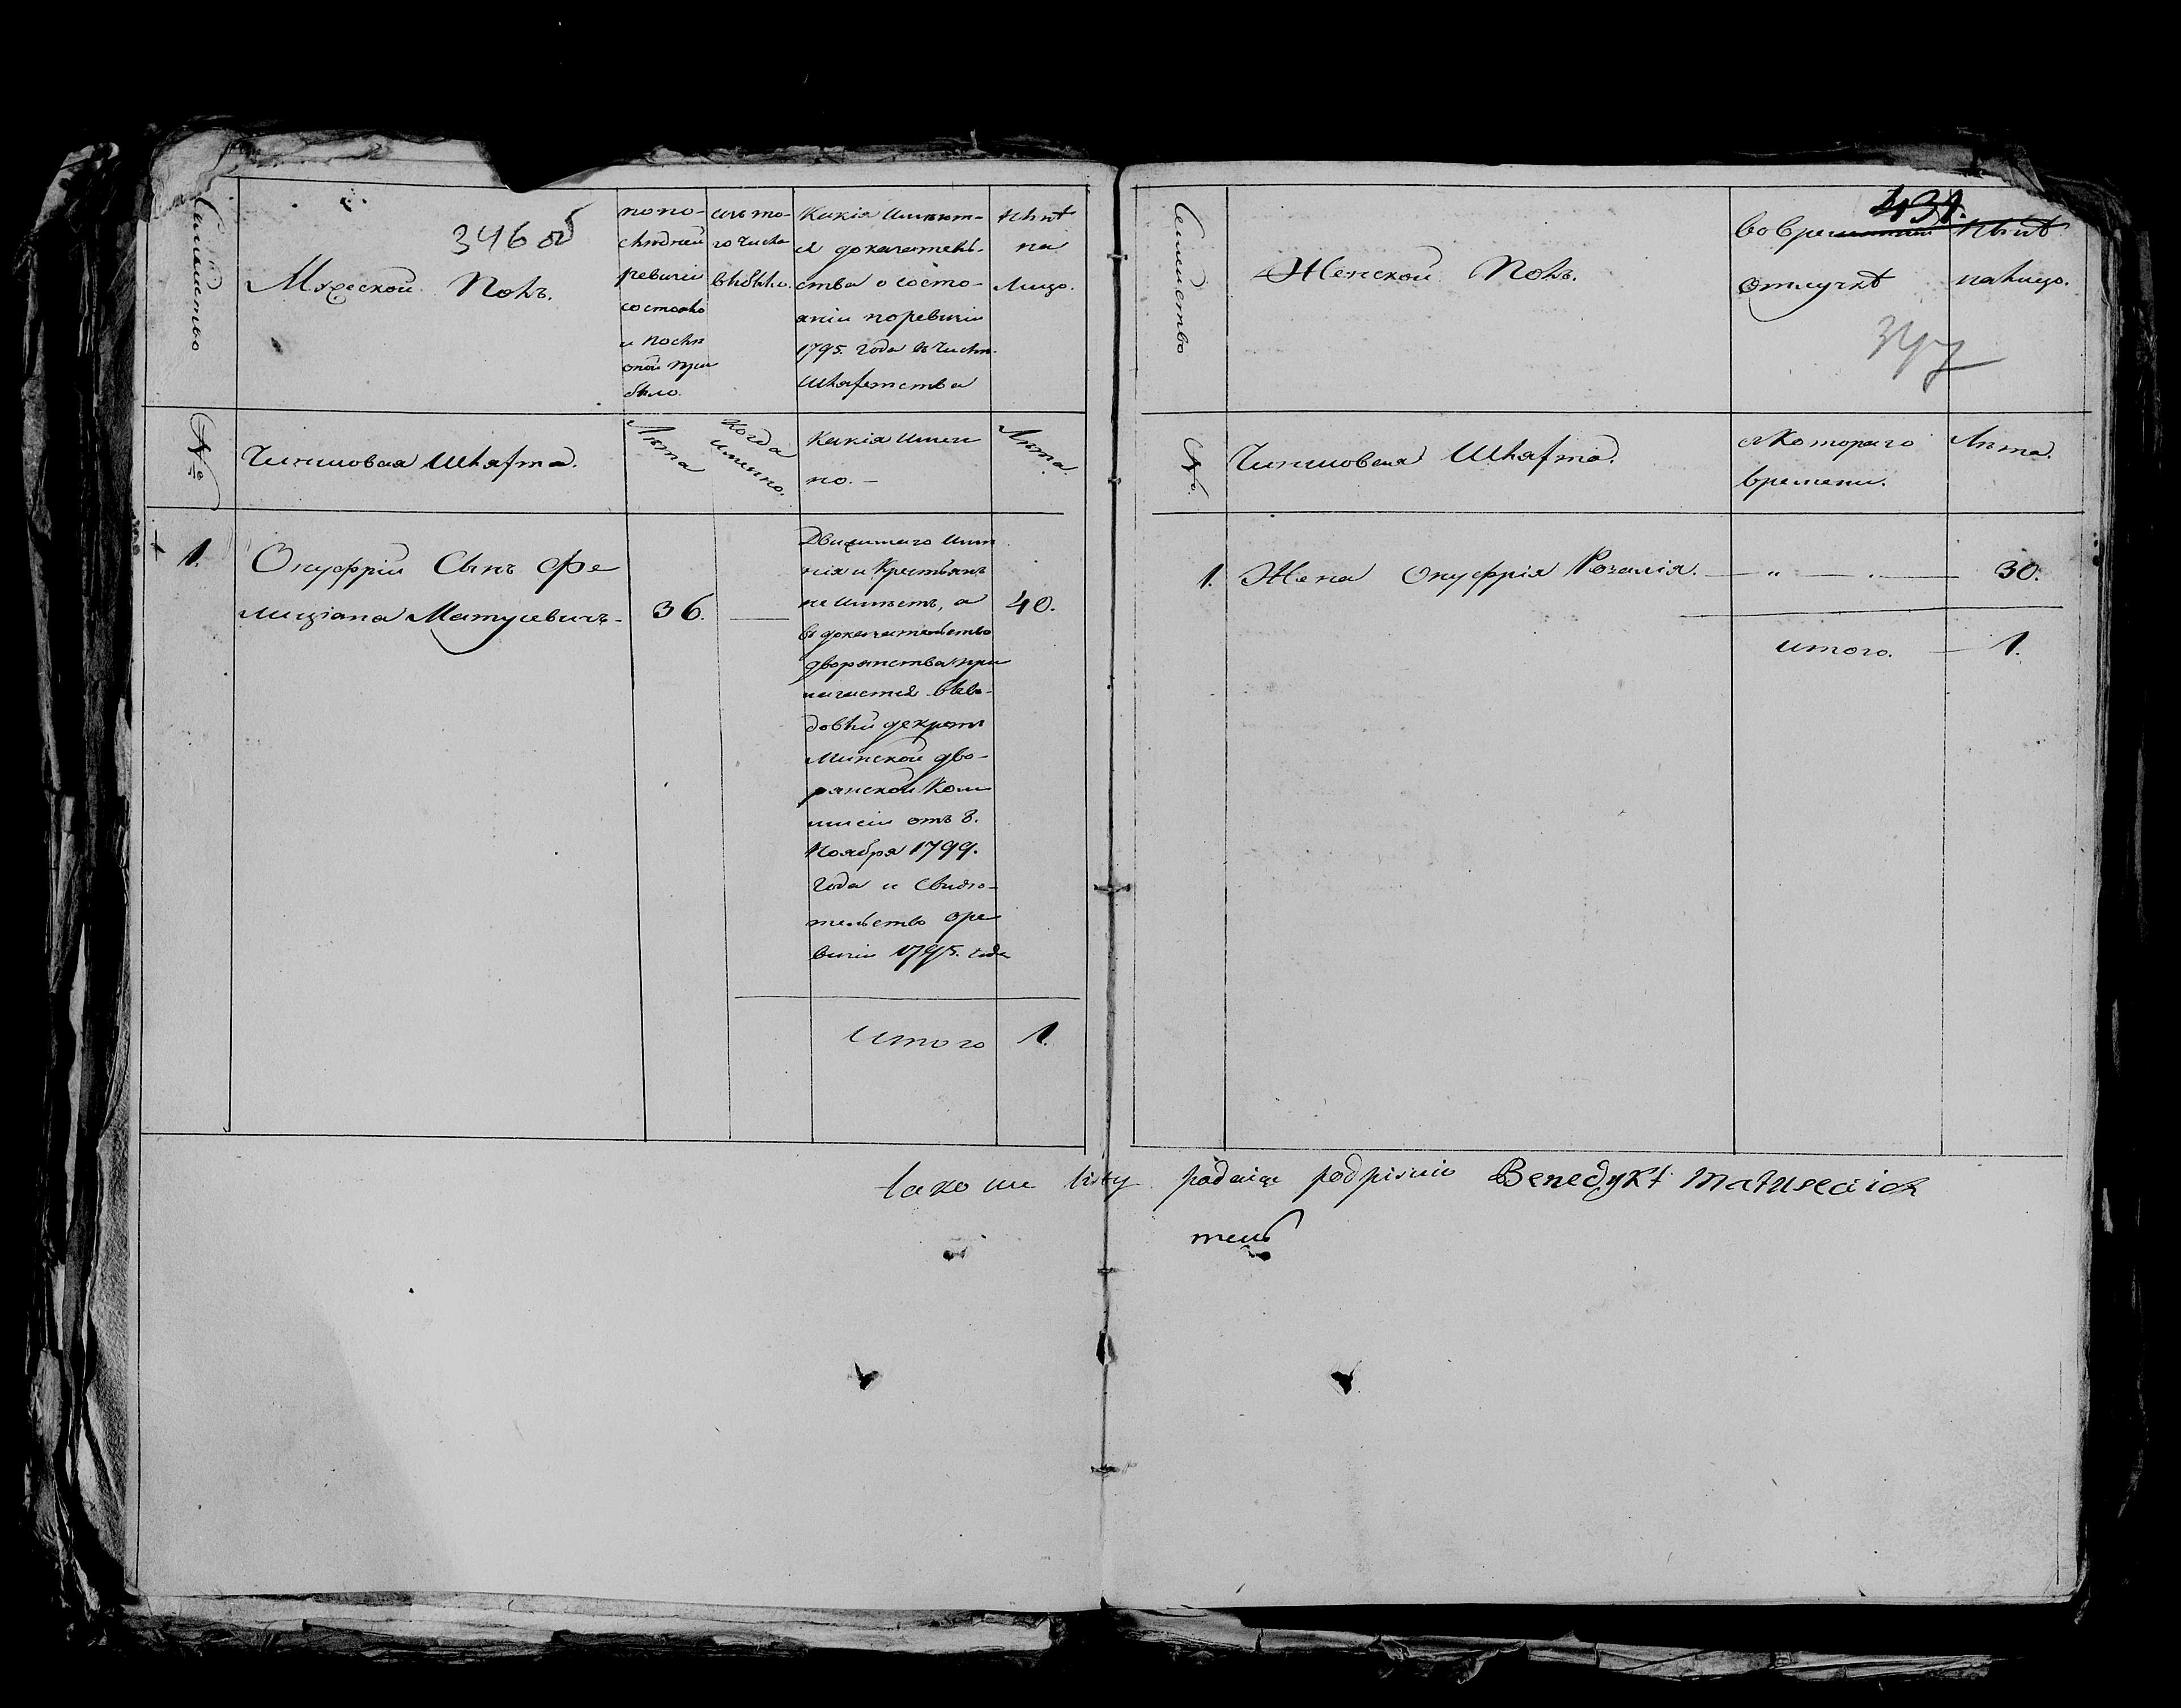 346 об
Семейство
Мужеской Полъ.
по по-
слѣдней
ревизіи
состояло
и послѣ
оной при
было.
изъ то-
го числа
выбыло.
Какія имѣют-
ся доказатель-
ства о состо-
яніи по ревизіи
1795. года въ числѣ
шляхетства
нынѣ
на
лицо.
№
Чиншовая Шляхта.
Лѣта
когда
имянно.
Какія имян
но. —
Лѣта.
1.
Онуфрій Сынъ Фе
лиціана Матусевичъ —
36.
Движимаго имѣ
нія и Крестьянъ
не имѣетъ, а
въ доказательство
дворянства при
лагается выво-
довый декретъ
Минской дво-
рянской Ком
мисіи отъ 8.
Ноября 1799.
года и свидѣ-
тельство о ре
визіи 1795. года
40.
итого 1.
Семейство
Женской Полъ.
431.
во временной
отлучкѣ
нынѣ
на лицо.
№.
Чиншовая Шляхта.
съ Котораго
времени.
Лѣта.
1. Жена Онуфрія Розалія. — " — — 30.
итого. — 1.
takowe listy podaiąc podpisuie Benedykt Matusewicz